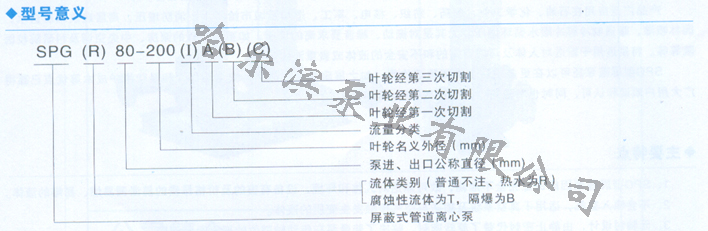 ◆型号意义
SPG (R) 80-200(I)A(B)(C)
叶轮经第三次切割
叶轮经第二次切割
叶轮经第一次切割
流量分类
叶轮名义外径(mm)
泵进、出口公称直径(mm)
流体类别(普通不注、热水为R)
腐蚀性流体为T,隔爆为B
屏蔽式管道离心泵
哈尔滨泵业有限公司